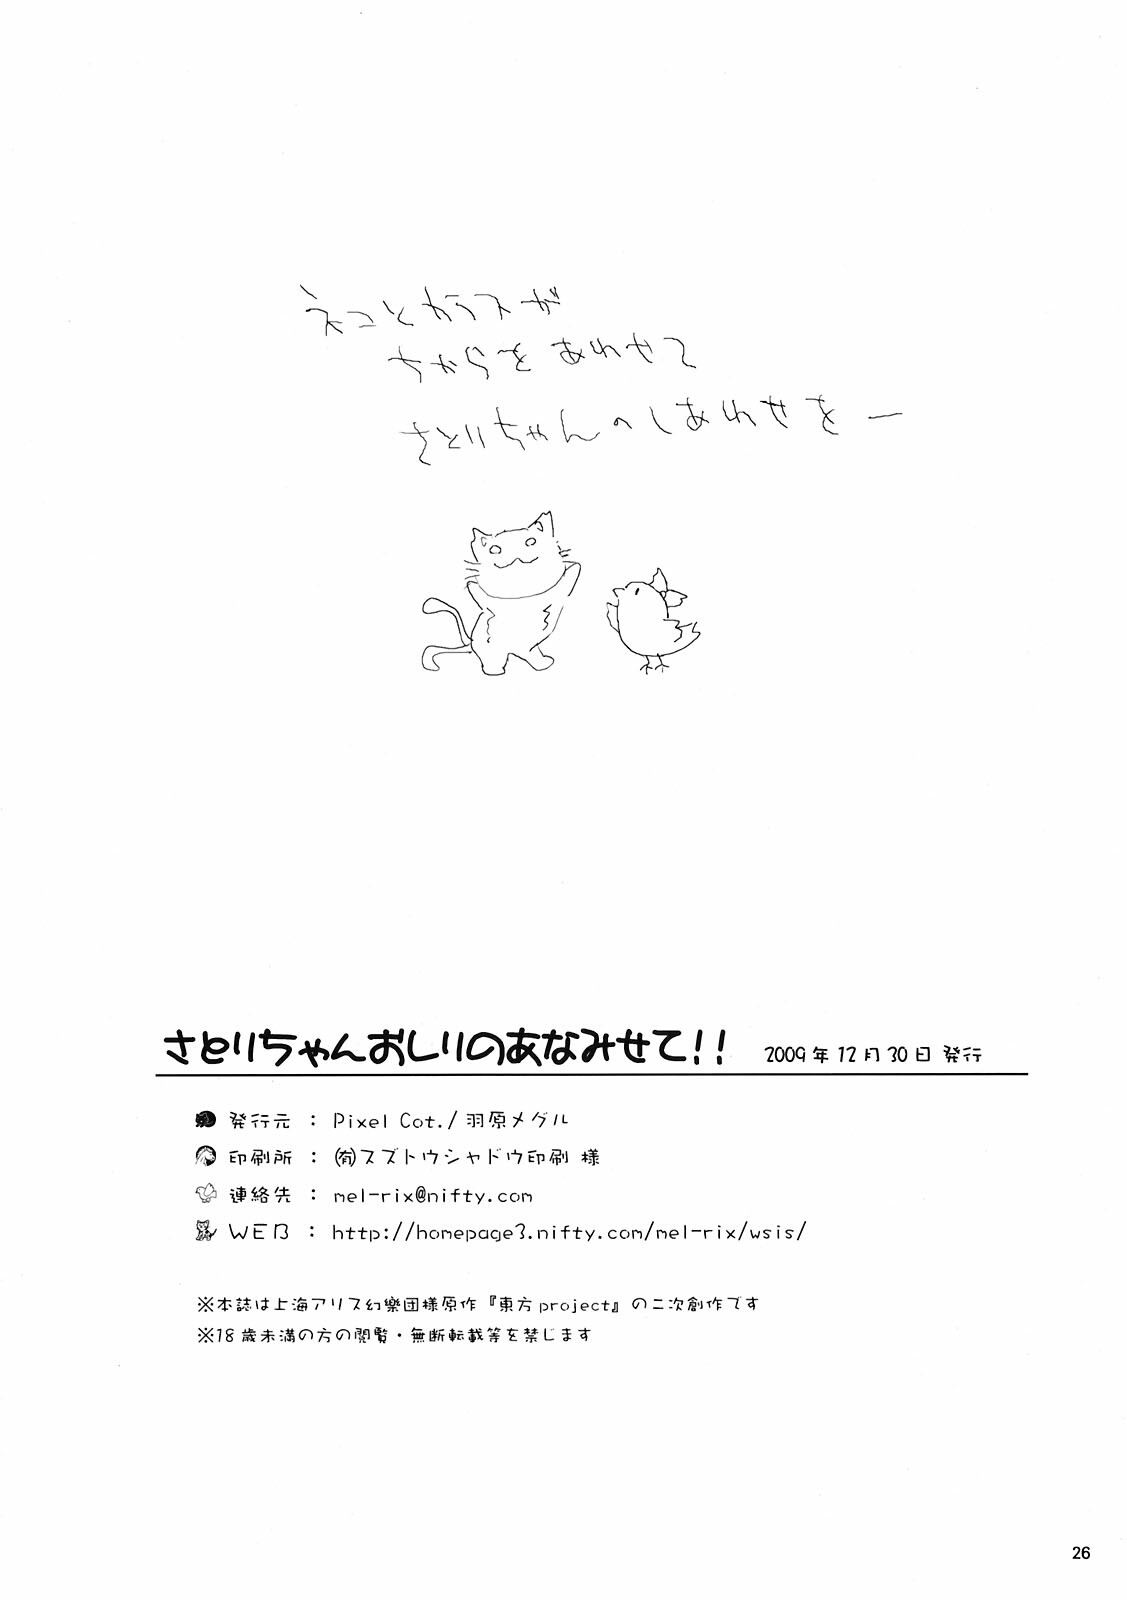 ネコとカラスが
ちからをあわせて
さとりちゃんのしあわせをー
さとりちゃんおしりのあなみせて!! 2009年12月30日発行
発行元 : Pixel Cot./羽原メグル
印刷所 : ㈲スズトウシャドウ印刷 様
連絡先 : mel-rix@nifty.com
WEB : http://homepage3.nifty.com/mel-rix/wsis/
※本誌は上海アリス幻樂団様原作『東方project』の二次創作です
※18歳未満の方の閲覧・無断転載等を禁じます
26